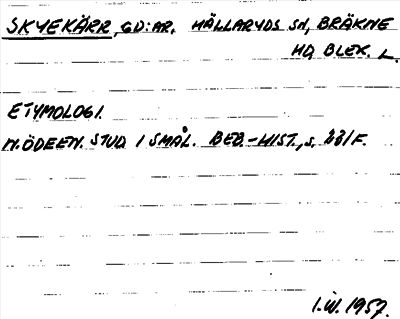 SKYEKÄRR, GD:AR. HÄLLARYDS SN, BRÄKNE
HD, BLEK. L.
ETYMOLOGI.
N. ÖDEEN. STUD I SMÅL. BEB.-HIST., S. F.
1957.